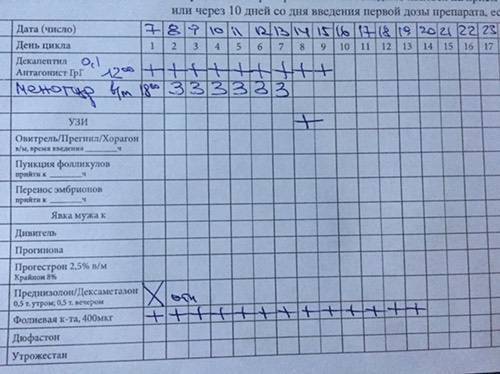 или через 10 дней со дня введения первой дозы препарата, ес
Дата (число) 7 8 9 10 11 12 13 14 15 16 17 18 19 20 21 22 23
День цикла 1 2 3 4 5 6 7 8 9 10 11 12 13 14 15 16 17
Декапептил 0,1
Антагонист ГрГ 12⁰⁰ + + + + + + + + +
Меногур в/м 18⁰⁰ 3 3 3 3 3 3
УЗИ +
Овитрель/Прегнил/Хорагон
в/м, время введения ______ч
Пункция фолликулов
прийти к ______ч
Перенос эмбрионов
прийти к ______ч
Явка мужа к
Дивигель
Прогинова
Прогестрон 2,5% в/м
Крайнон 8%
Преднизолон/Дексаметазон
0,5 т. утром; 0,5 т. вечером X
Фолиевая к-та, 400мкг + + + + + + + + + + + + +
Дюфастон
Утрожестан